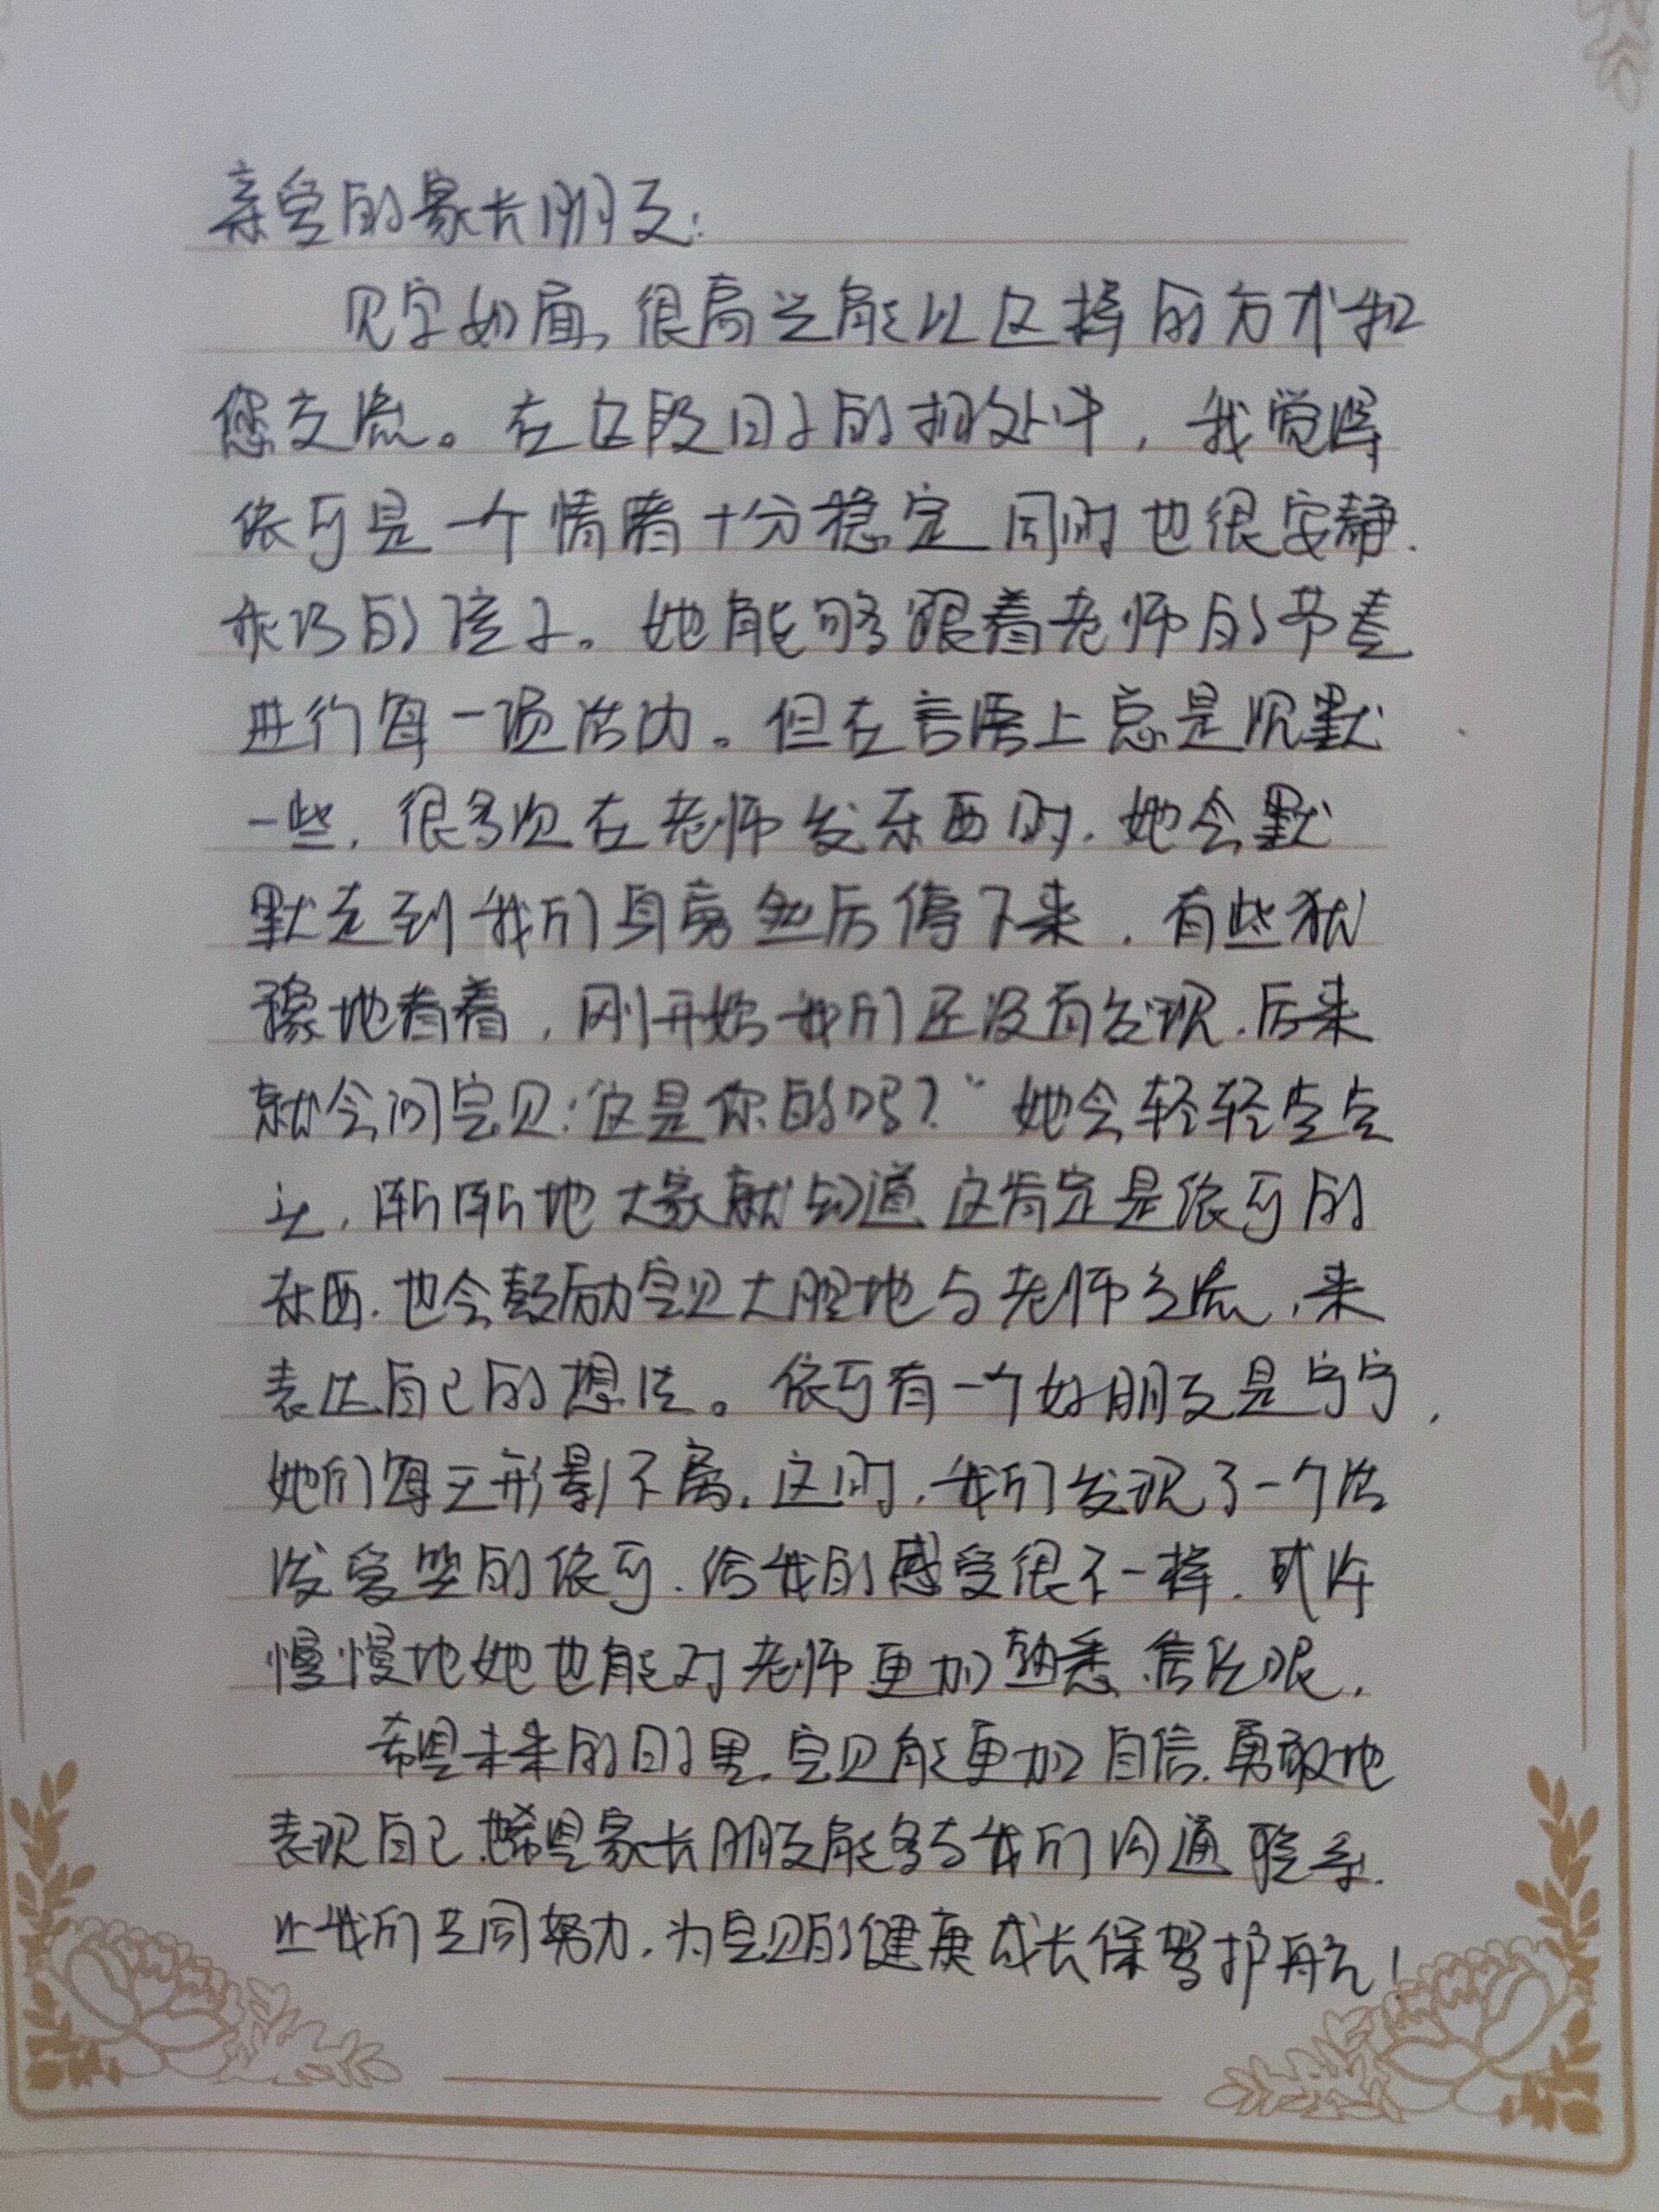 亲爱的家长朋友：
见字如面，很高兴能以这样的方式和
您交流。在这段日子的相处中，我觉得
依可是一个情绪十分稳定同时也很安静.
乖巧的孩子。她能够跟着老师的节奏
进行每一项活动。但在言语上总是沉默
一些，很多次在老师发东西时，她会默
默走到我们身旁然后停下来，有些犹
豫地看着，刚开始我们还没有发现，后来
就会问宝贝：“这是你的吗？”她会轻轻点点
头，渐渐地大家就知道这肯定是依可的
东西，也会鼓励宝贝大胆地与老师交流，来
表达自己的想法。依可有一个好朋友是宁宁，
她们每天形影不离，这时，我们发现了一个活
泼爱笑的依可，给我的感受很不一样，或许
慢慢地她也能对老师更加熟悉、信任哦，
希望未来的日子里，宝贝能更加自信，勇敢地
表现自己，也希望家长朋友能多与我们沟通联系，
让我们共同努力，为宝贝的健康成长保驾护航！